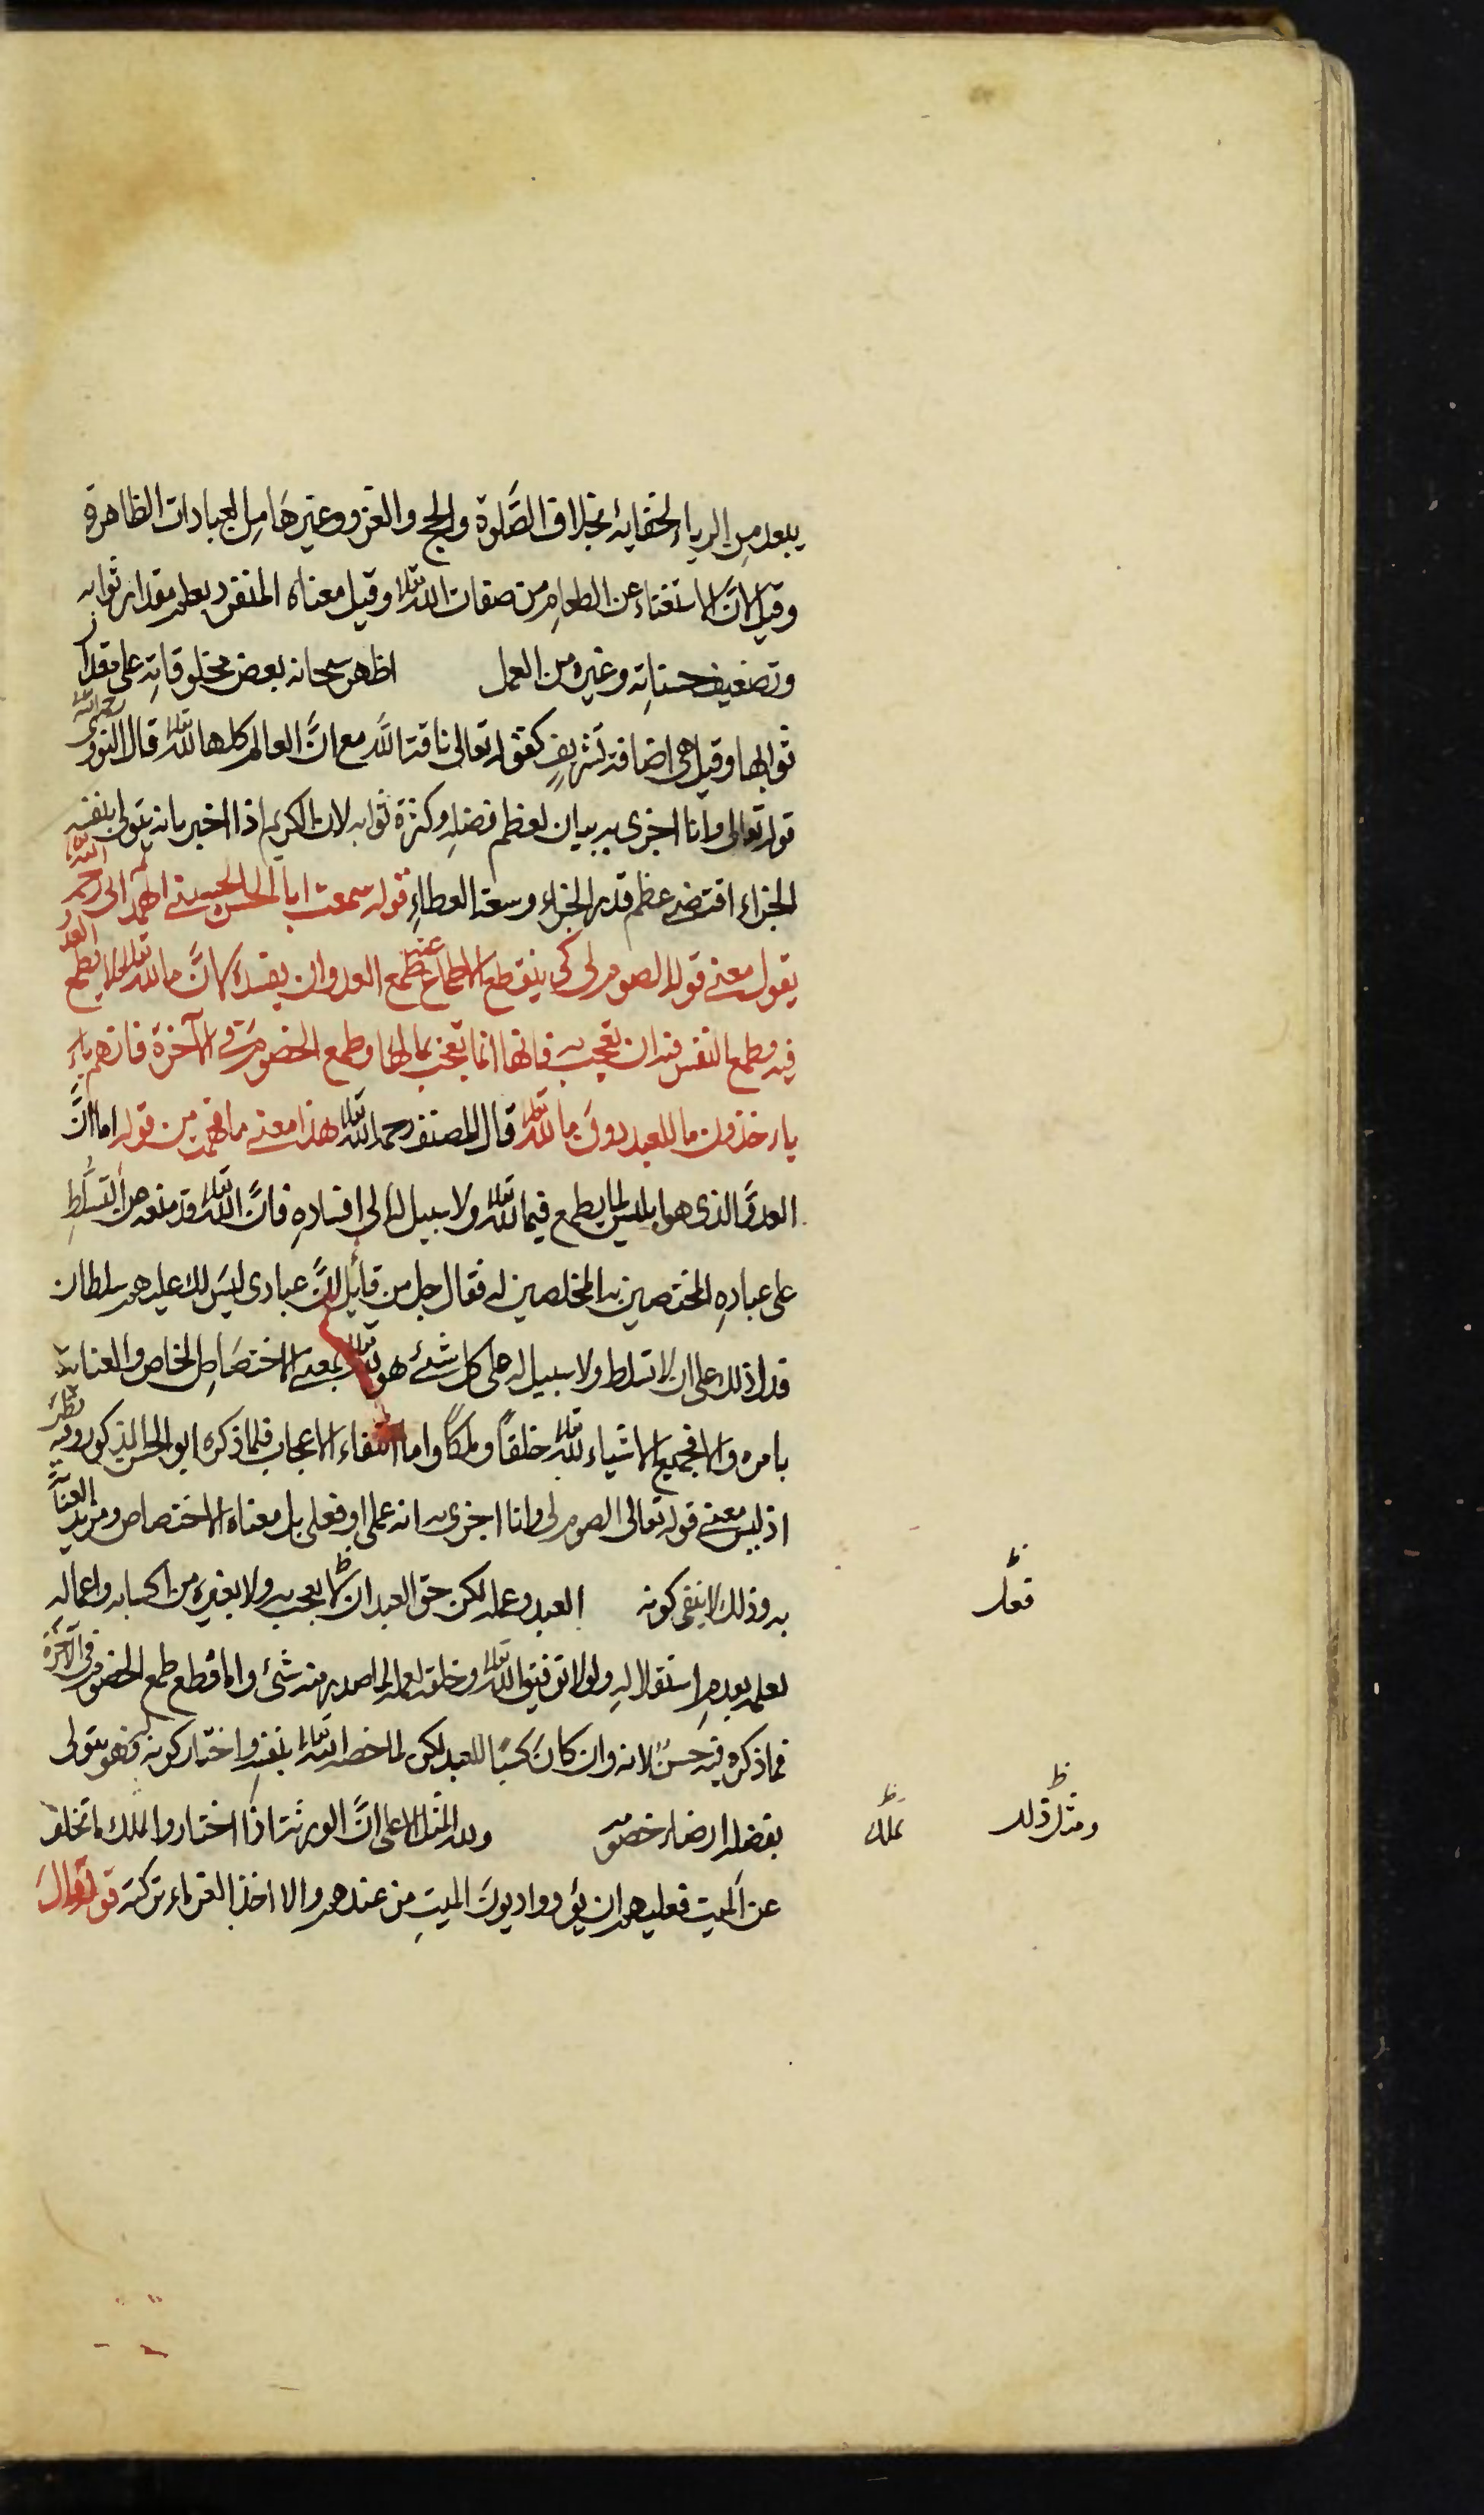 يبعد مِن الرياء لخفايهٔ بخلاف الصَّلوة والحج والغزو وغيرهَا مِن العبادات الظاهرة
وقيل لانَّ الاستغناء عن الطعامِ من صفات الله تعالى وقيل معناه المنفرد بعلم مقدار ثوابه
وتضعيف حسناتِه وغيره من العمل اظهر سبحانه بعض مخلوقاتِه على مقدار
ثوابها وقيل هى اضافة تشريفٍ كقوله تعالى ناقة اللَّه مع انَّ العالم كلها لله تعالى قال النووى رحمه الله
قوله تعالى وانا اجزى به بيان لعظم فضلِه وكثرة ثوابه لان الكريم اذا اخبر بانه يتولى بنفسه
الجزاء اقتضى عظم قدر الجزاء وسعة العطاءِ قوله سمعت ابا الحسن الحسينى الهمدانى رحمه الله
يقول معنى قوله الصوم لى كى ينقطع الاطماع عنه طمع العدو ان يفسدهٔ لانَّ ما لله تعالى لا يطمع العدو
فيه وطمع النفس فيه ان تعجب به فانها انما تعجب بما لها وطمع الخصومَة فى الآخرة فانهم ياء
ياءخذون ما للعبد دونَ ما لله تعالى قال المصنف رحمه الله تعالى هذا معنى ما فهمت من قوله اما انَّ
العدوَّ الذى هو ابليس لما يطمع فيما لله تعالى ولا سبيل له الى افسادهِ فانَّ الله تعالى قد منعه عن التسلّطِ
على عبادهِ المختصين به المخلصين له فقال جل من قائل انَّ عبادى ليسَ لك عليهم سلطان
فدل ذلك على ان لا تسلط ولا سبيل له على كل شئ هو لله تعالى بمعنى الاختصَاصِ الخاص والعناية
بامره والا فجميع الاشياء لله تعالى خلقاً وملكاً واما انتفاء الاعجاب فلما ذكره ابو الحسن المذكور وفيه نظر
اذ ليس معنى قوله تعالى الصوم لى وانا اجزى به انه عملى او فعلى بل معناه الاختصاص ومزيد العناية
به وذلك لا ينفى كونه العبد وعمله لكن حق العبد ان لا يعجب به ولا بغيره من اكسابه واعماله
فعل
لعلمه بعدمِ استقلالهِ ولولا توفيق الله تعالى وخلقه لعمله لما صدر منه شئ واما قطع طمع الخصوم فى الآخرة
فما ذكره فيه حسنٌ لانه وان كانَ كسبًا للعبد لكن لما خصه الله تعالى بنفسِه واختار كونه له فهو يتولى
بفضله ارضاء خصومه ولله المثل الاعلى انَّ الورثة اذا اختاروا الملك ما تخلف
ومثل ذلك
عن الميت فعليهم ان يؤدوا ديونَ الميتِ من عندهم والا اخذ الغرماء تركته قوله تعالَ